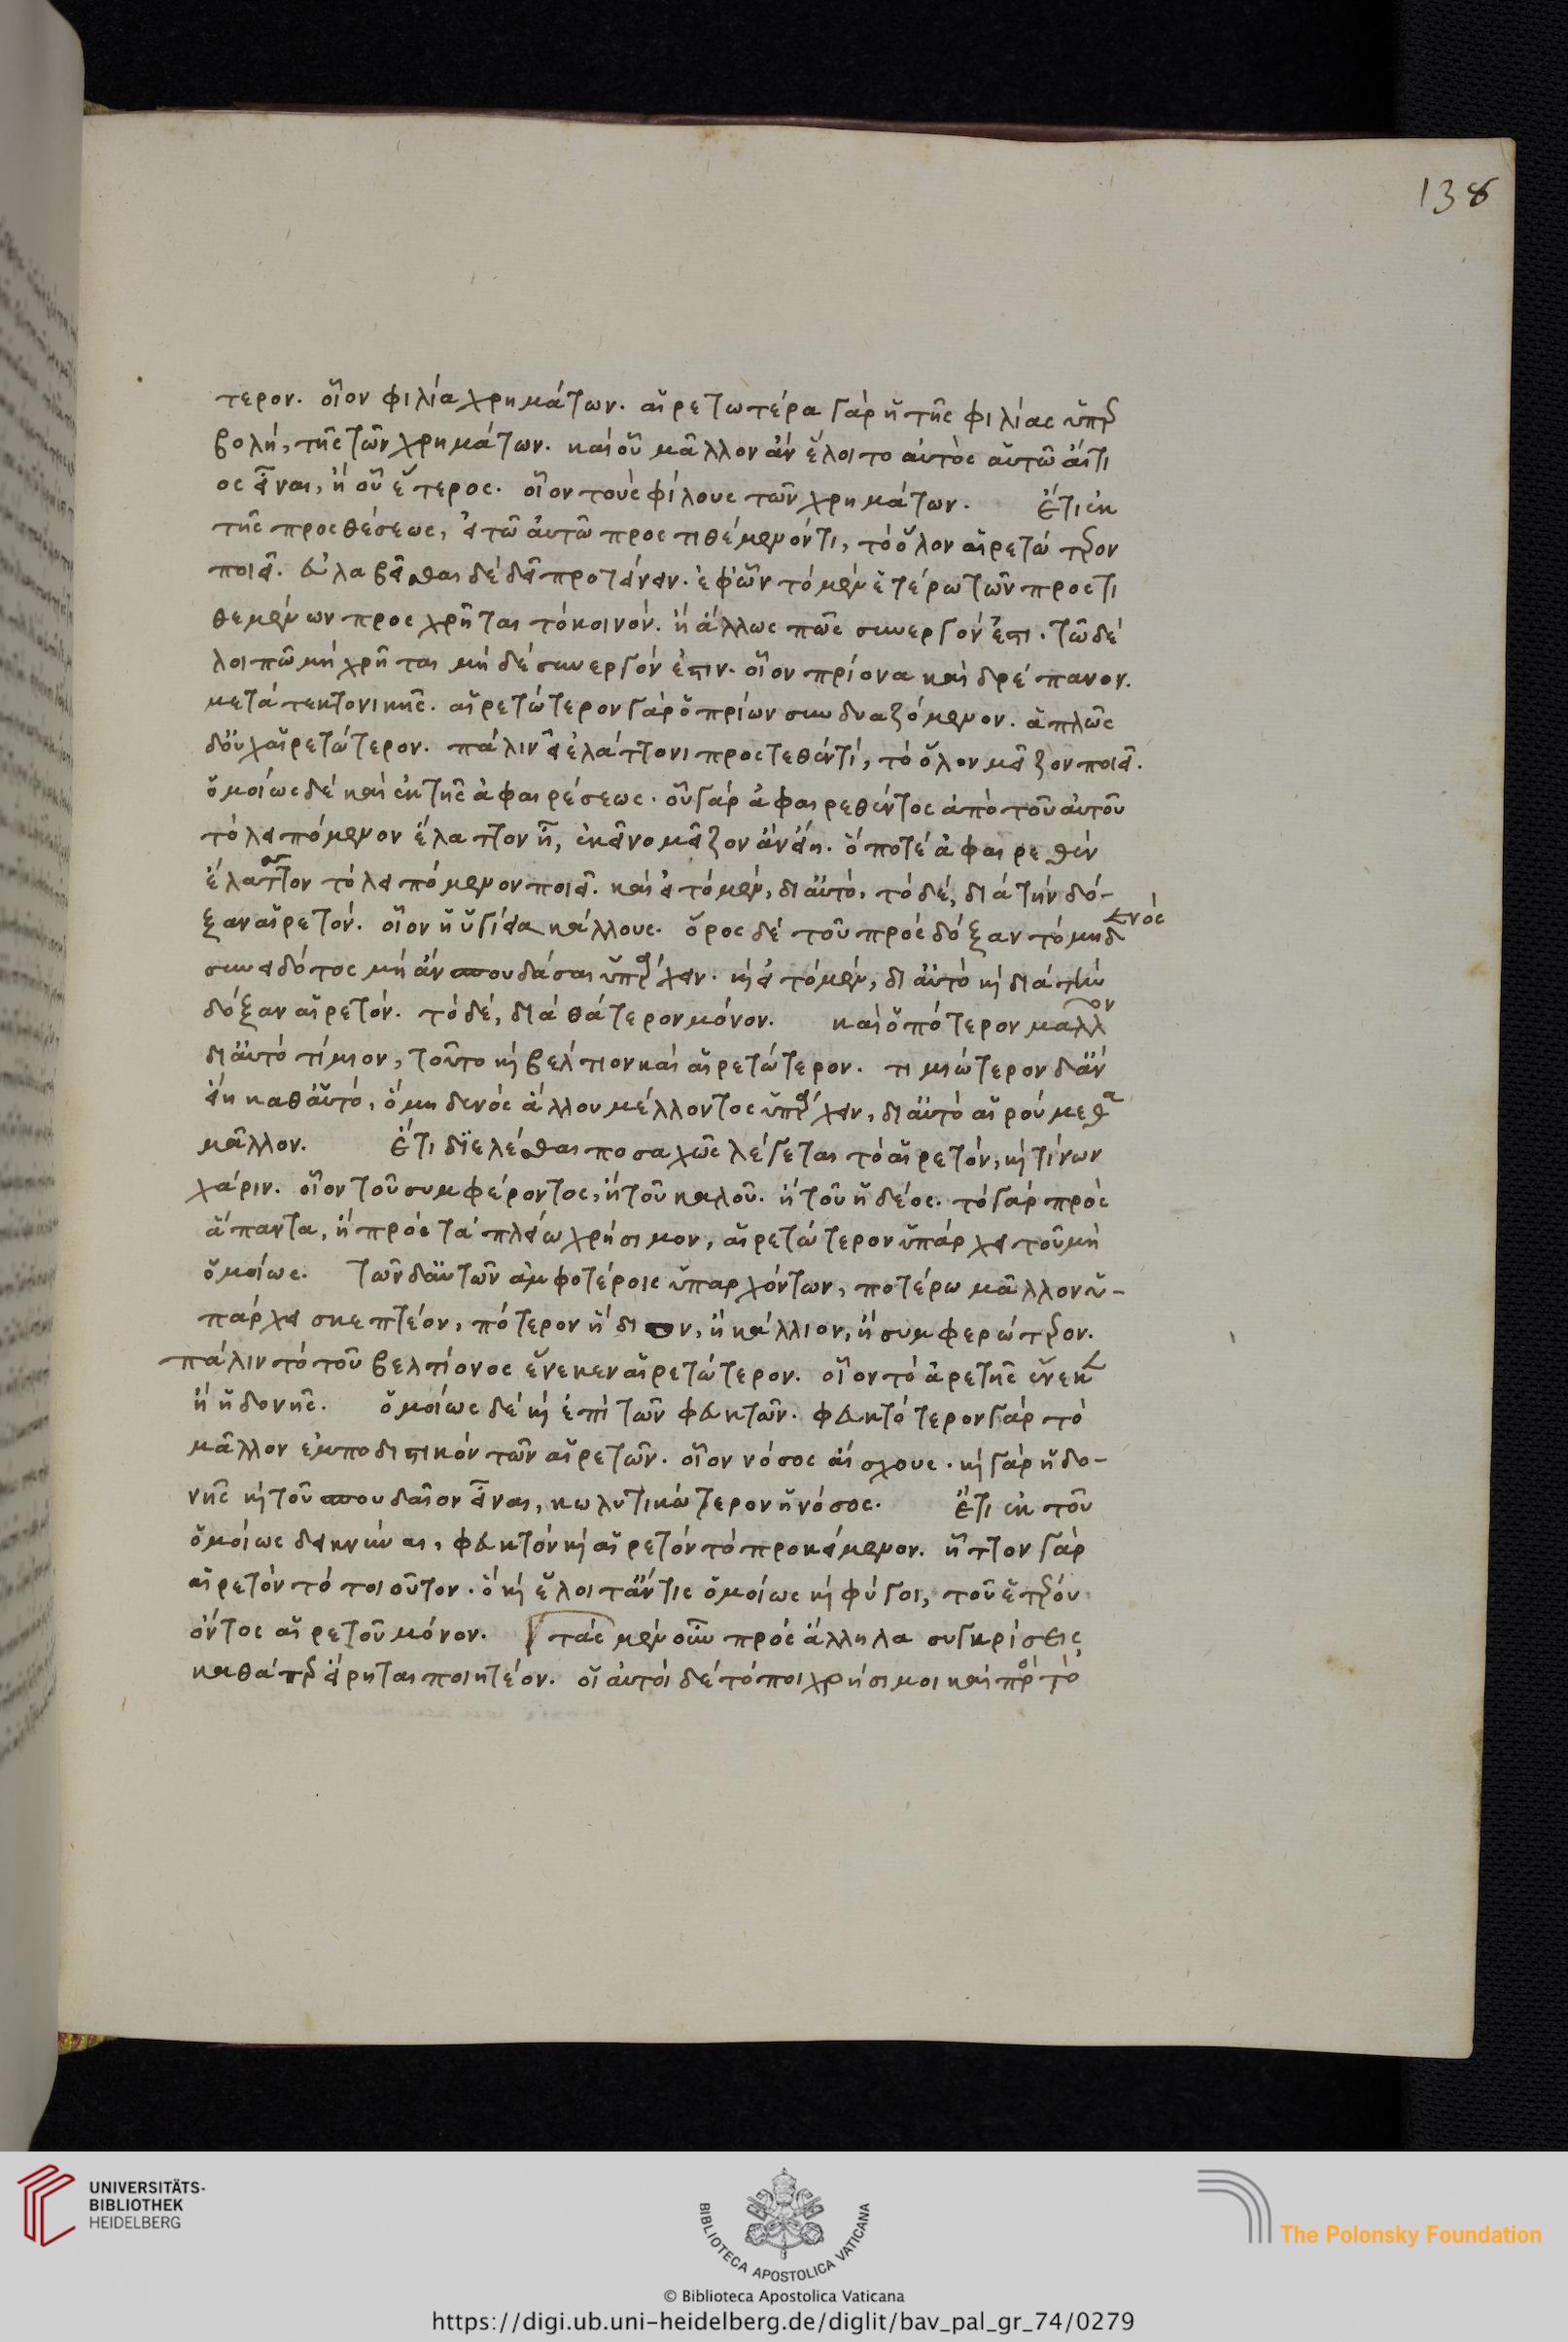 138
τερον. οἷον φιλία χρημάτων. αἱρετωτέρα γὰρ ἡ τῆς φιλίας ὑπερ
βολή, τῆς τῶν χρημάτων. καὶ οὗ μᾶλλον ἂν ἕλοιτο αὐτὸς αὑτῶ αἴτι
ος εἶναι, ἢ οὗ ἕτερος. οἷον τοὺς φίλους τῶν χρημάτων. Ἔτι ἐκ
τῆς προσθέσεως, εἰ τῶ αὐτῶ προστιθέμενόν τι, τὸ ὅλον αἱρετώτερον
ποιεῖ. εὐλαβεῖσθαι δὲ δεῖ προτείνειν. ἐφ' ὧν τὸ μὲν ἑτέρω τῶν προστι
θεμένων προσχρῆται τὸ κοινόν. ἢ ἄλλως πως συνεργόν ἐστι. τῶ δὲ
λοιπῶ μὴ χρῆται μὴ δὲ συνεργόν ἐστιν. οἷον πρίονα καὶ δρέπανον.
μετὰ τεκτονικῆς. αἱρετώτερον γὰρ ὁ πρίων συνδυαζόμενον. ἁπλῶς
δ' οὐχ αἱρετώτερον. πάλιν εἰ ἐλάττονι προστεθέν τι, τὸ ὅλον μεῖζον ποιεῖ.
ὁμοίως δὲ καὶ ἐκ τῆς ἀφαιρέσεως. οὗ γὰρ ἀφαιρεθέντος ἀπὸ τοῦ αὐτοῦ
τὸ λειπόμενον ἔλαττον ἦ, ἐκεῖνο μεῖζον ἂν εἴη. ὁπότε ἀφαιρεθὲν
ἔλαττον τὸ λειπόμενον ποιεῖ. καὶ εἰ τὸ μὲν, δι αὑτὸ, τὸ δὲ, διὰ τὴν δό-
ξαν αἱρετόν. οἷον ἡ ὑγίεια κάλλους. ὅρος δὲ τοῦ πρὸς δόξαν τὸ μηδενὸς
συνειδότος μὴ ἂν σπουδάσαι ὑπάρχειν. καὶ εἰ τὸ μὲν, δι αὑτὸ καὶ διὰ τὴν
δόξαν αἱρετόν. τὸ δὲ, διὰ θάτερον μόνον. καὶ ὁπότερον μᾶλλον
δι αὑτὸ τίμιον, τοῦτο καὶ βέλτιον καὶ αἱρετώτερον. τιμιώτερον δ' ἂν
εἴη καθ' αὑτὸ, ὃ μηδενὸς ἄλλου μέλλοντος ὑπάρχειν, δι αὑτὸ αἱρούμεθα
μᾶλλον. Ἔτι διελέσθαι ποσαχῶς λέγεται τὸ αἱρετόν, καὶ τίνων
χάριν. οἷον τοῦ συμφέροντος, ἢ τοῦ καλοῦ. ἢ τοῦ ἡδέος. τὸ γὰρ πρὸς
ἅπαντα, ἢ πρὸς τὰ πλείω χρήσιμον, αἱρετώτερον ὑπάρχει τοῦ μὴ
ὁμοίως. τῶν δ' αὐτῶν ἀμφοτέροις ὑπαρχόντων, ποτέρω μᾶλλον ὑ-
πάρχει σκεπτέον, πότερον ἥδιον, ἢ κάλλιον, ἢ συμφερώτερον.
πάλιν τὸ τοῦ βελτίονος ἕνεκεν αἱρετώτερον. οἷον τὸ ἀρετῆς ἕνεκεν
ἢ ἡδονῆς. ὁμοίως δὲ καὶ ἐπὶ τῶν φευκτῶν. φευκτότερον γὰρ τὸ
μᾶλλον ἐμποδιστικὸν τῶν αἱρετῶν. οἷον νόσος αἴσχους. καὶ γὰρ ἡδο-
νῆς καὶ τοῦ σπουδαῖον εἶναι, κωλυτικώτερον ἡ νόσος. Ἔτι ἐκ τοῦ
ὁμοίως δεικνύναι, φευκτὸν καὶ αἱρετὸν τὸ προκείμενον. ἧττον γὰρ
αἱρετὸν τὸ τοιοῦτον. ὃ καὶ ἕλοιτ' ἄν τις ὁμοίως καὶ φύγοι, τοῦ ἑτέρου
ὄντος αἱρετοῦ μόνον. τὰς μὲν οὖν πρὸς ἄλληλα συγκρίσεις
καθάπερ εἴρηται ποιητέον. οἱ αὐτοὶ δὲ τόποι χρήσιμοι καὶ πρὸς τὸ
UNIVERSITÄTS-
BIBLIOTHEK
HEIDELBERG
BIBLIOTECA APOSTOLICA VATICANA
The Polonsky Foundation
© Biblioteca Apostolica Vaticana
https://digi.ub.uni-heidelberg.de/diglit/bav_pal_gr_74/0279